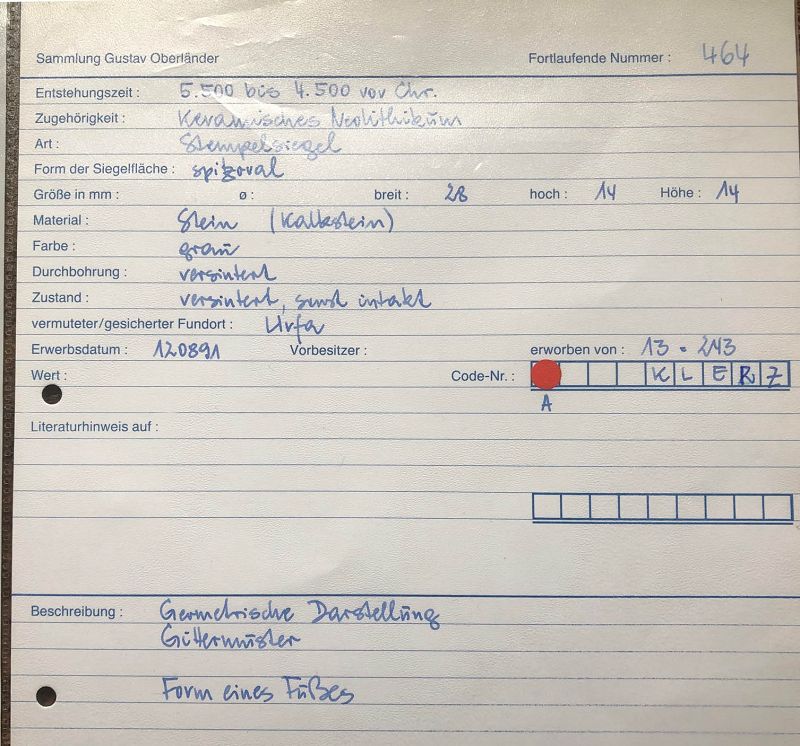 Sammlung Gustav Oberländer Fortlaufende Nummer : 464
Entstehungszeit : 5.500 bis 4.500 vor Chr.
Zugehörigkeit : Keramisches Neolithikum
Art : Stempelsiegel
Form der Siegelfläche : spitzoval
Größe in mm : ø : breit : 28 hoch : 14 Höhe : 14
Material : Stein (Kalkstein)
Farbe : grau
Durchbohrung : versintert
Zustand : versintert, sonst intakt
vermuteter/gesicherter Fundort : Urfa
Erwerbsdatum : 120891 Vorbesitzer : erworben von : 13 - 243
Wert : Code-Nr. : K L E R Z
A
Literaturhinweis auf :
Beschreibung : Geometrische Darstellung
Gittermuster
Form eines Fußes